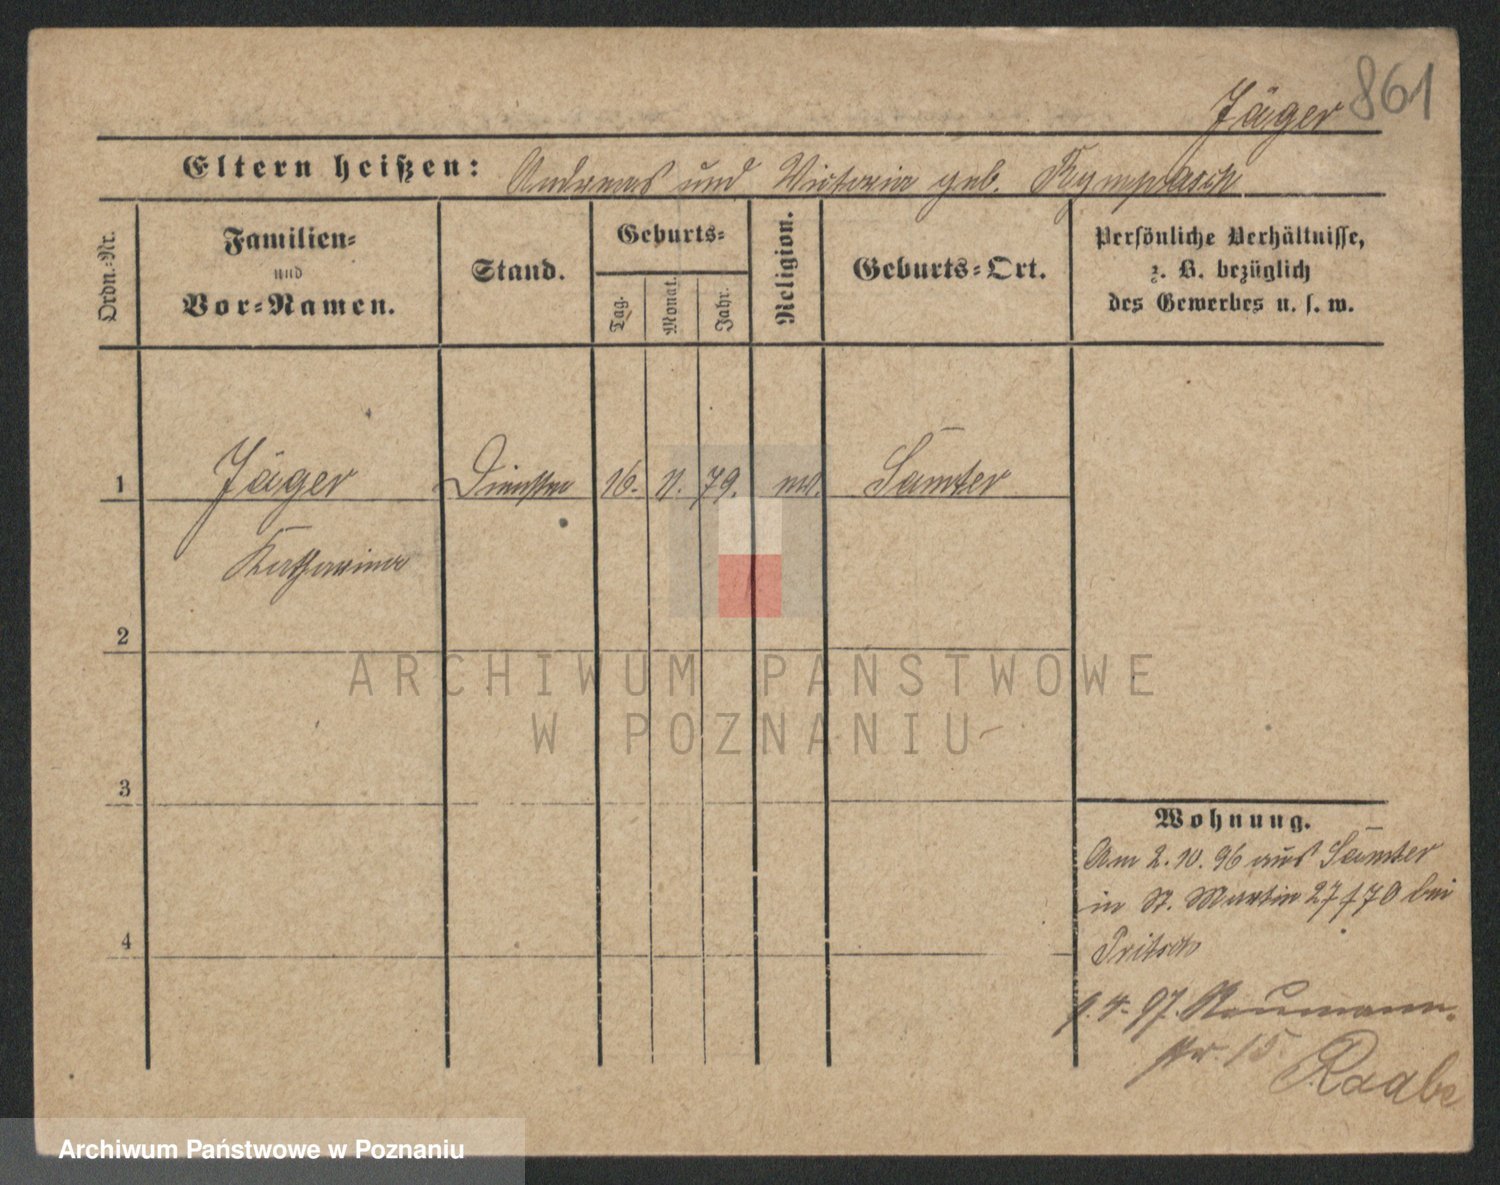 861
Jäger
Eltern heißen: Andreas und Victoria geb.
Ordn.-Nr.
Familien-
und
Vor-Namen.
Stand.
Geburts-
Tag.
Monat.
Jahr.
Religion.
Geburts-Ort.
Persönliche Verhältnisse,
z. B. bezüglich
des Gewerbes u. s. w.
1 Jäger 16. 11. 79. Samter
Katharina
2
3
4
Wohnung.
Am 2. 10. 96 aus Samter
in St. Martin 27/70 bei
Pritsch
1. 4. 97. Naumann-
str. 15 Raabe
ARCHIWUM PAŃSTWOWE
W POZNANIU
Archiwum Państwowe w Poznaniu